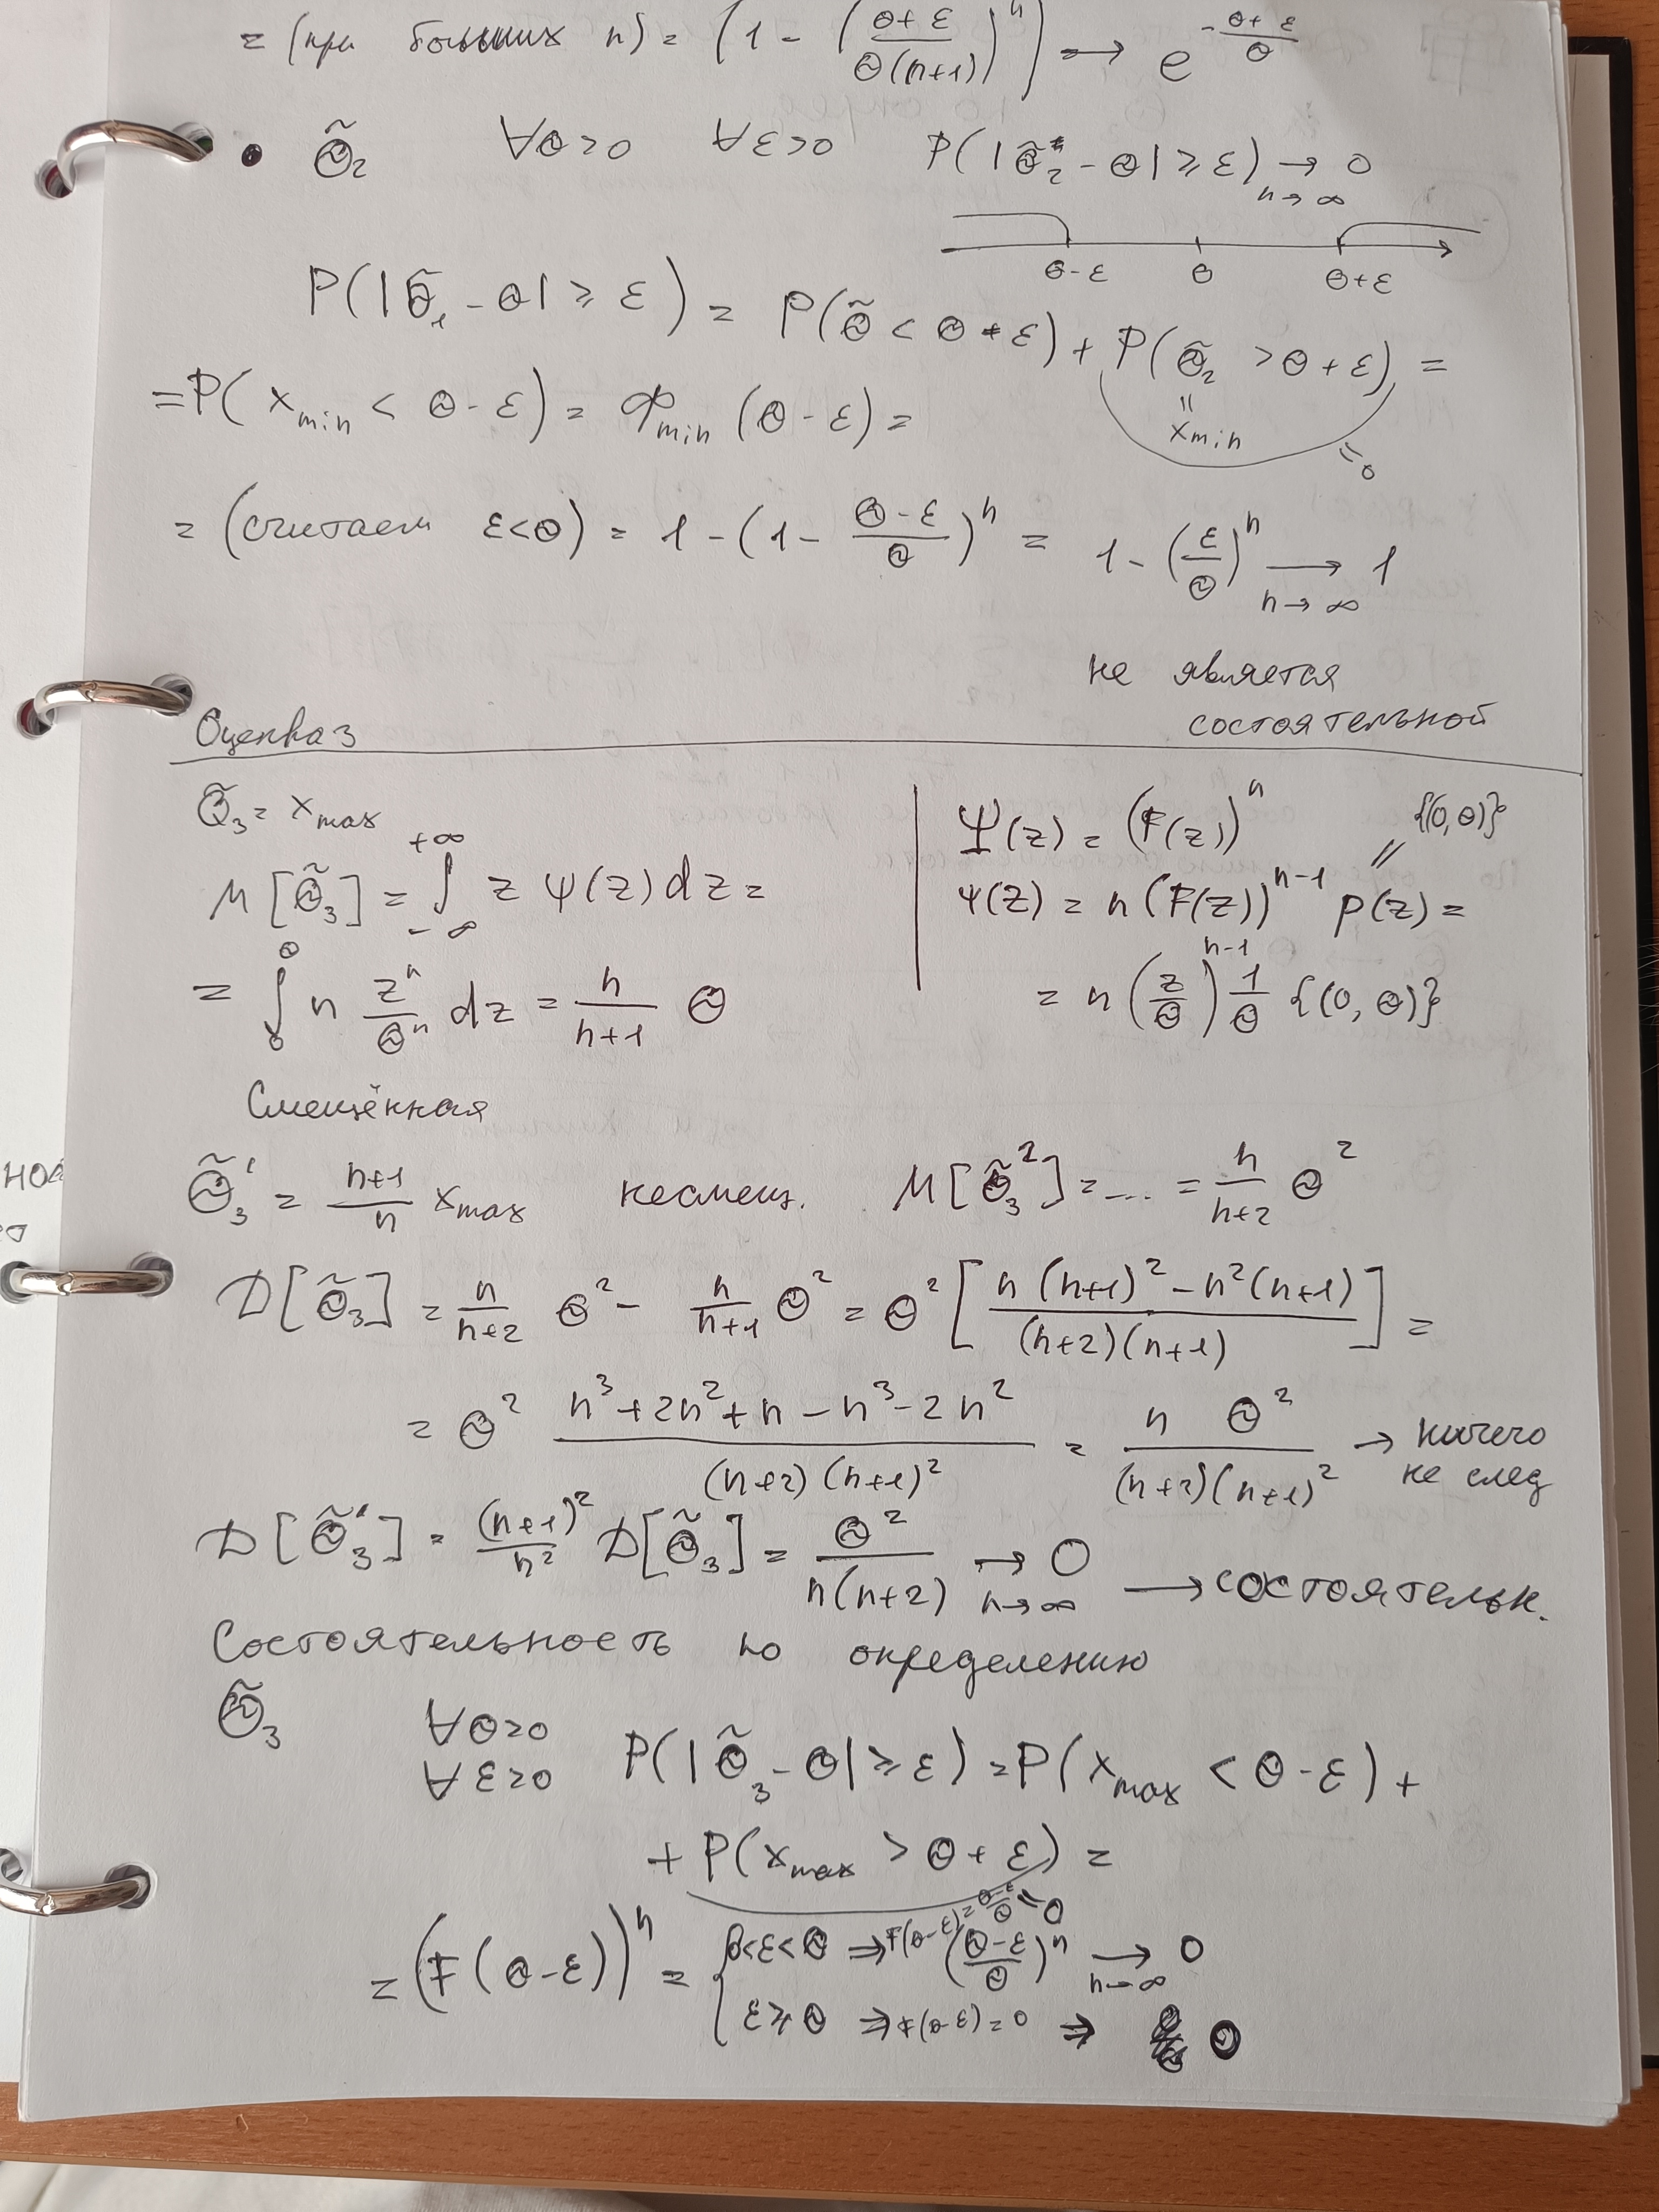 = (при больших n) = (1 - (θ+ε / θ(n+1))^n) → e^{-(θ+ε)/θ}
• θ̃₂ ∀θ>0 ∀ε>0 P(|θ̃₂ - θ| ≥ ε) → 0 n→∞
θ-ε θ θ+ε
P(|θ̃₁ - θ| ≥ ε) = P(θ̃ < θ + ε) + P(θ̃₂ > θ+ε) =
= P(x_min < θ-ε) = Φ_min (θ-ε) = " x_min = 0
= (считаем ε<θ) = 1 - (1 - (θ-ε)/θ)^n = 1 - (ε/θ)^n → 1 n→∞
не является
состоятельной
Оценка 3
θ̃₃ = x_max
M[θ̃₃] = ∫_{-∞}^{+∞} z ψ(z) dz =
= ∫_0^θ n z^n/θ^n dz = n/(n+1) θ
Ψ(z) = (F(z))^n {(0,θ)}
ψ(z) = n (F(z))^{n-1} p(z) =
= n (z/θ)^{n-1} 1/θ {(0,θ)}
Смещённая
θ̃₃' = (n+1)/n x_max несмещ. M[θ̃₃²] = ... = n/(n+2) θ²
D[θ̃₃] = n/(n+2) θ² - n/(n+1) θ² = θ² [(n(n+1)² - n²(n+1))/((n+2)(n+1))] =
= θ² (n³+2n²+n-n³-2n²)/((n+2)(n+1)²) = n θ²/((n+2)(n+1)²) → ничего
не след
D[θ̃₃'] = (n+1)²/n² D[θ̃₃] = θ²/(n(n+2)) → 0 n→∞ → состоятельн.
Состоятельность по определению
θ̃₃ ∀θ>0
∀ε>0 P(|θ̃₃ - θ| ≥ ε) = P(x_max < θ-ε) +
+ P(x_max > θ+ε) =
= 0
= (F(θ-ε))^n = { 0<ε<θ ⇒ F(θ-ε) = (θ-ε)/θ ((θ-ε)/θ)^n → 0 n→∞
ε≥θ ⇒ F(θ-ε) = 0 ⇒ 0